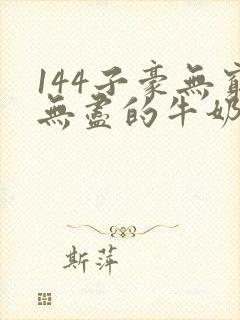 144子豪無窮
無盡的牛奶
斯萍